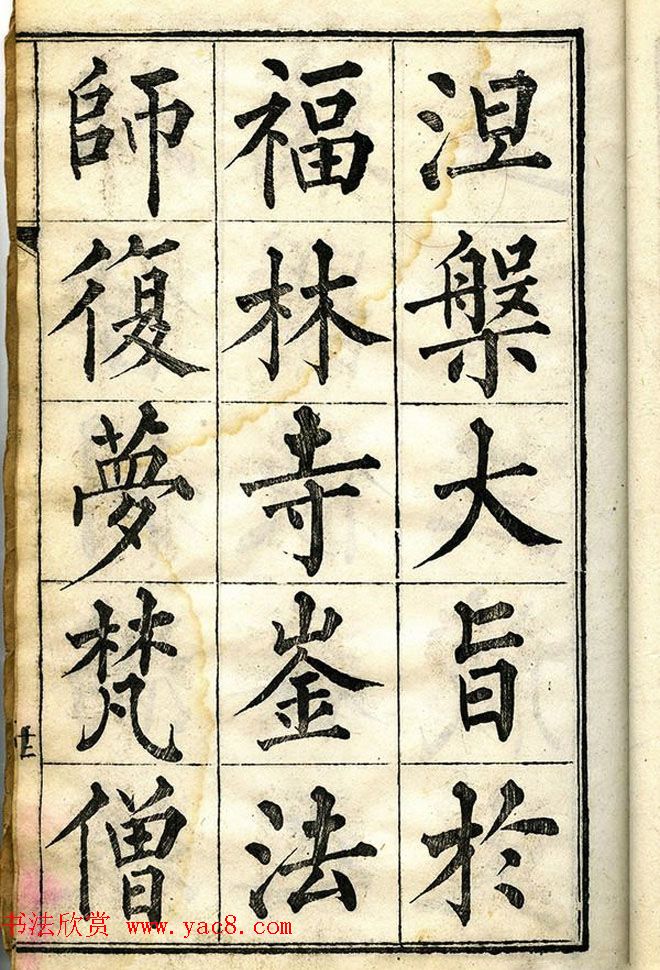 涅槃大旨於
福林寺崟法
師復夢梵僧
廿三
书法欣赏 www.yac8.com